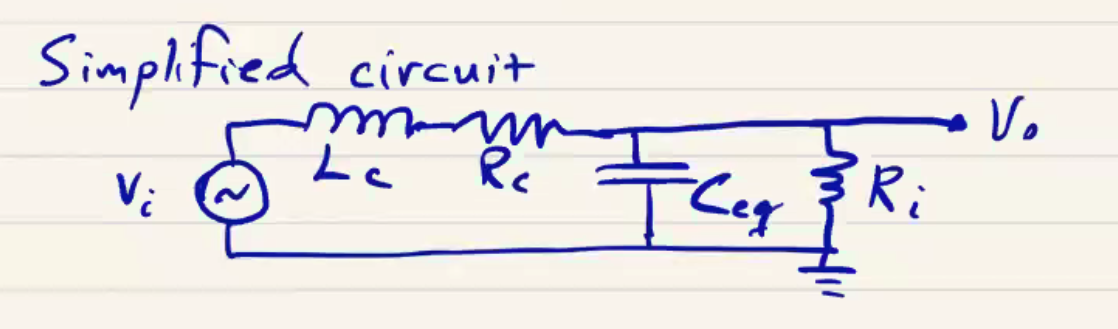 Simplified circuit
Vo
Lc Rc
Vi Ceq Ri